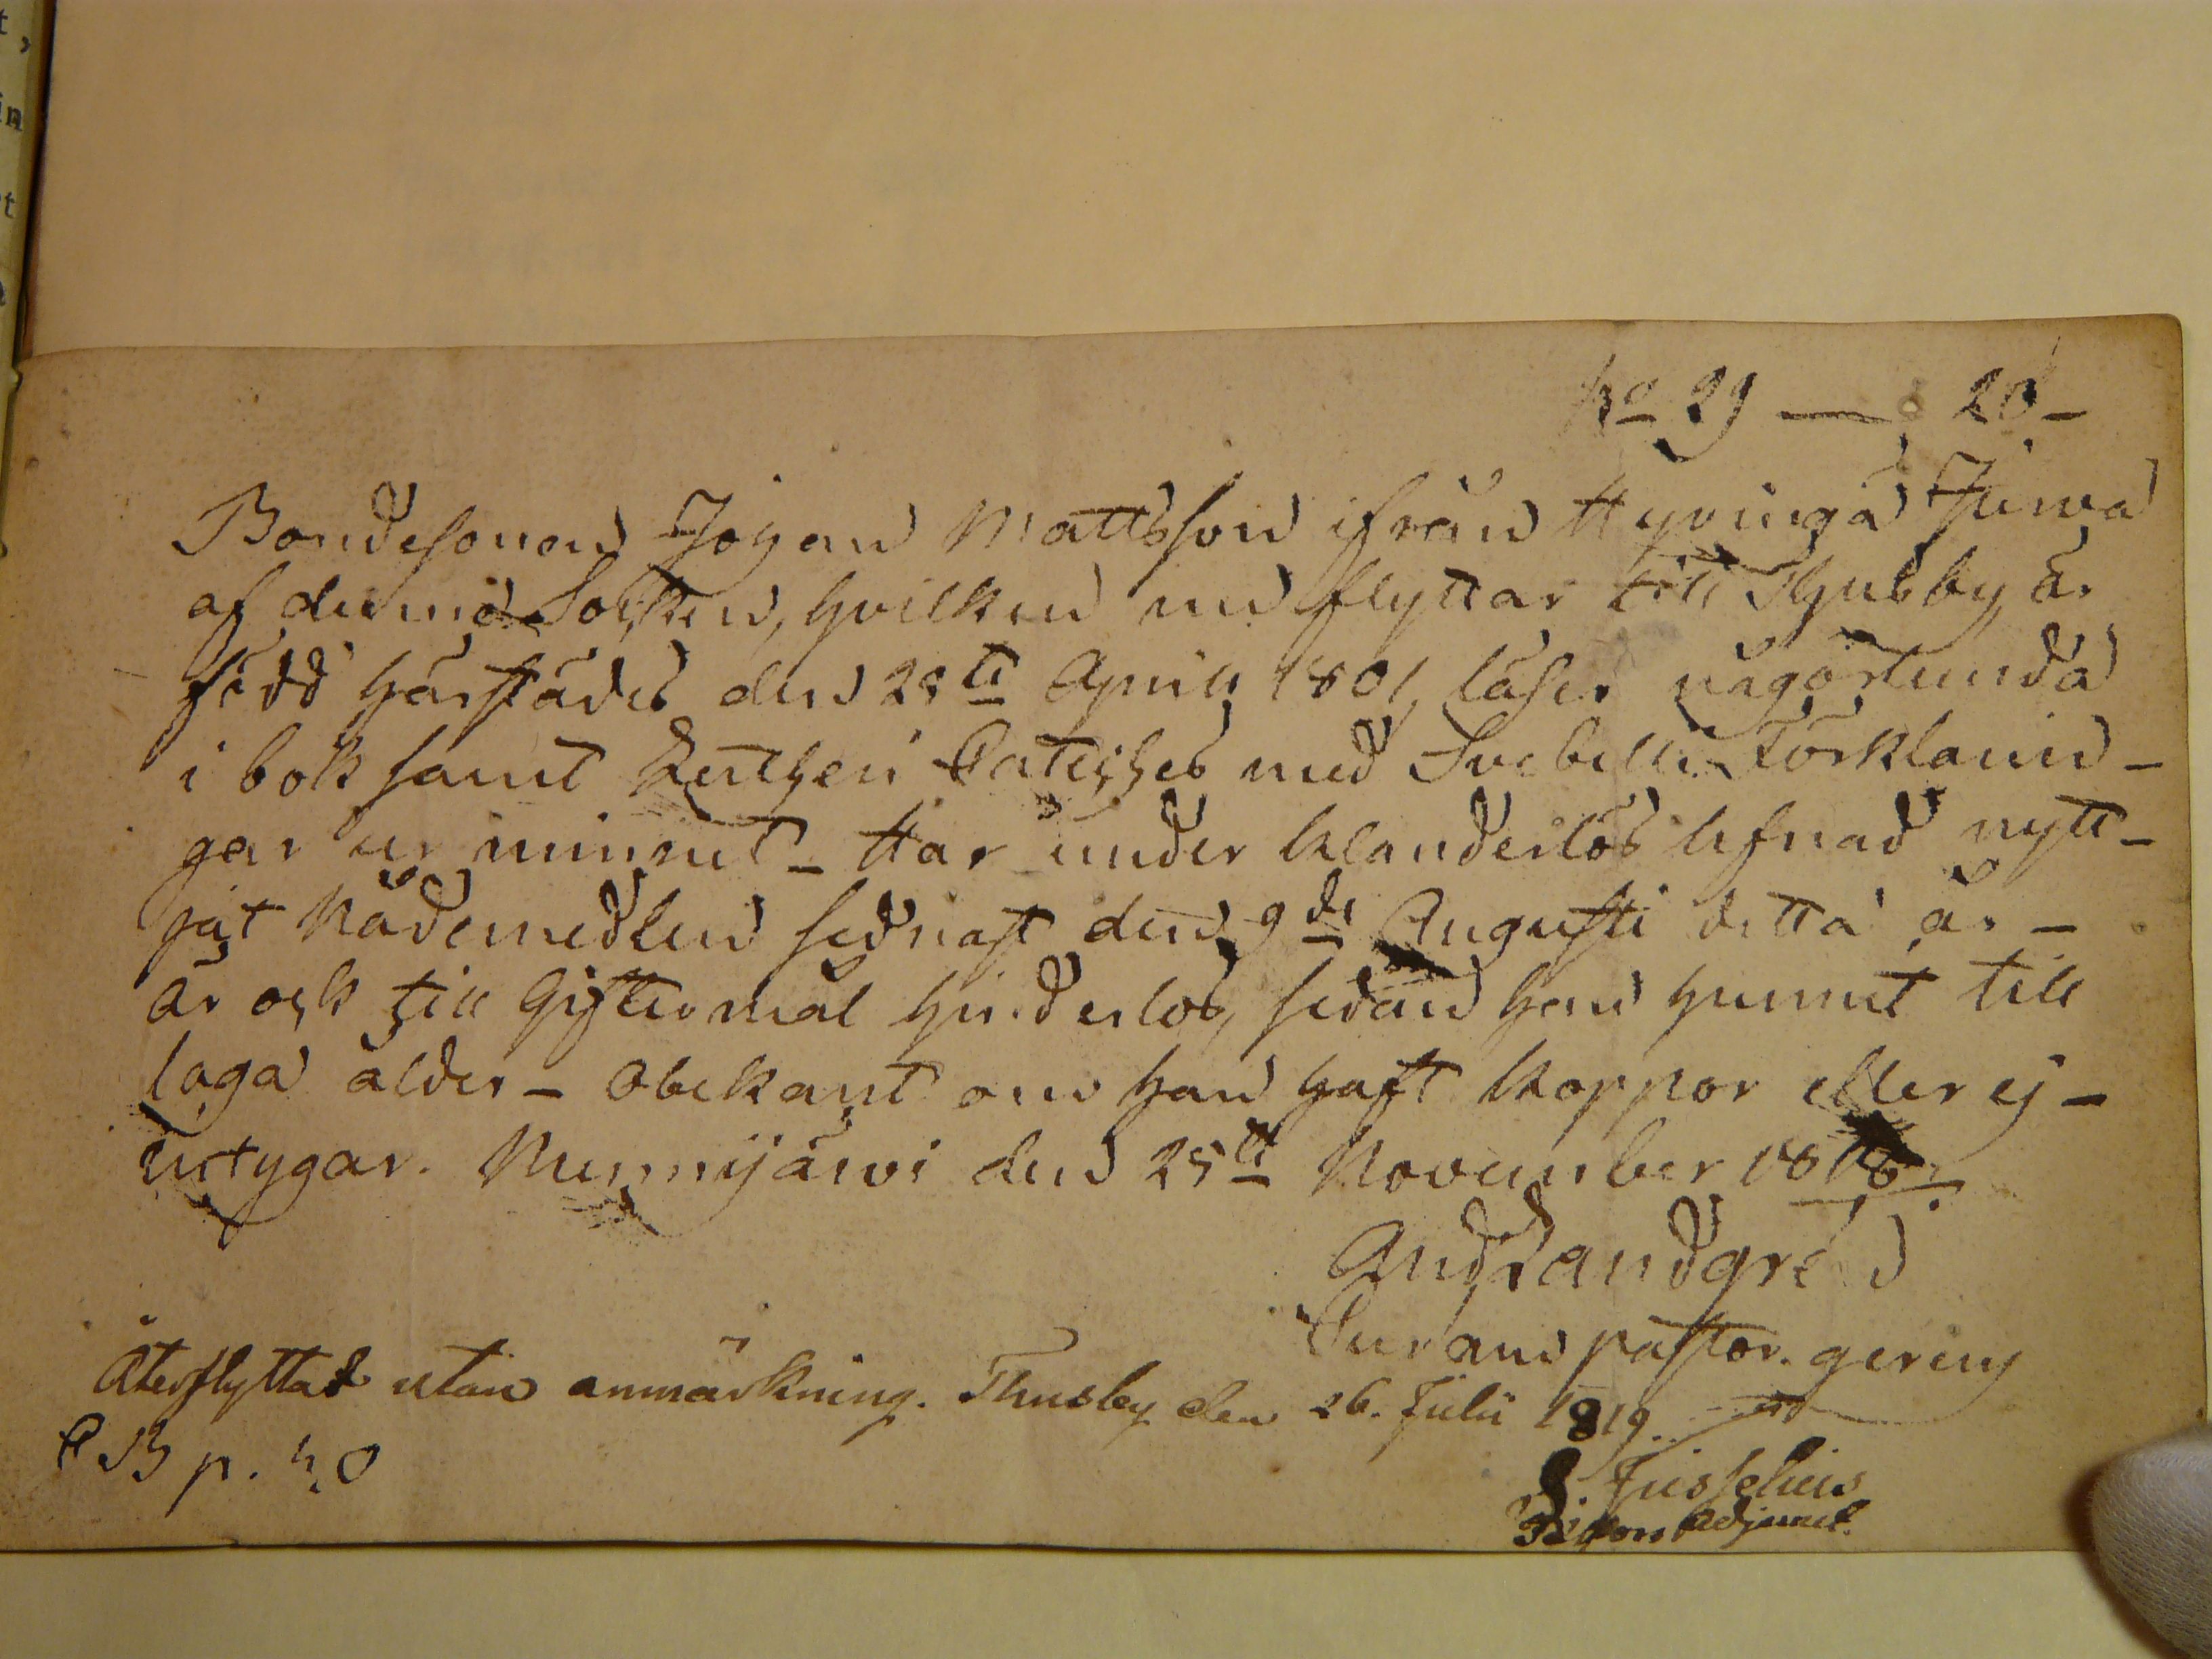 No 29 — 20 –
Bondesonen Johan Mattsson ifrån Hyvinga Juwa
af denna Socken, hvilken nu flyttar till Thusby, är
född härstädes den 28de Aprill 1801, läser någorlunda
i bok samt Lutheri Cateches med Svebelli Förklarin-
gar ur minnet – Har under klanderlös lefnad nytt-
jat Nådemedlen sednast den 9de Augusti detta år –
är ock till Giftermål hinderlös, sedan han hunnit till
laga ålder – Obekant om han haft koppor eller ej –
intygar. Nurmijärvi den 25te November 1818.
And Landgren
Curam pastor. gerens
Återflyttad utan anmärkning. Thusby den 26. Julii 1819.
B p. 40
Jusselius
Adjunct.